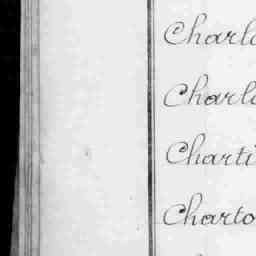 Charl
Charl
Charti
Charto